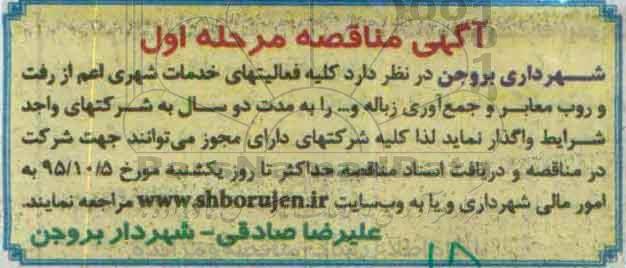 آگهی مناقصه مرحله اول
شهرداری بروجن در نظر دارد کلیه فعالیتهای خدمات شهری اعم از رفت
و روب معابر و جمع‌آوری زباله و... را به مدت دو سال به شرکتهای واجد
شرایط واگذار نماید لذا کلیه شرکتهای دارای مجوز می‌توانند جهت شرکت
در مناقصه و دریافت اسناد مناقصه حداکثر تا روز یکشنبه مورخ ۹۵/۱۰/۵ به
امور مالی شهرداری و یا به وب‌سایت www.shborujen.ir مراجعه نمایند.
علیرضا صادقی - شهردار بروجن